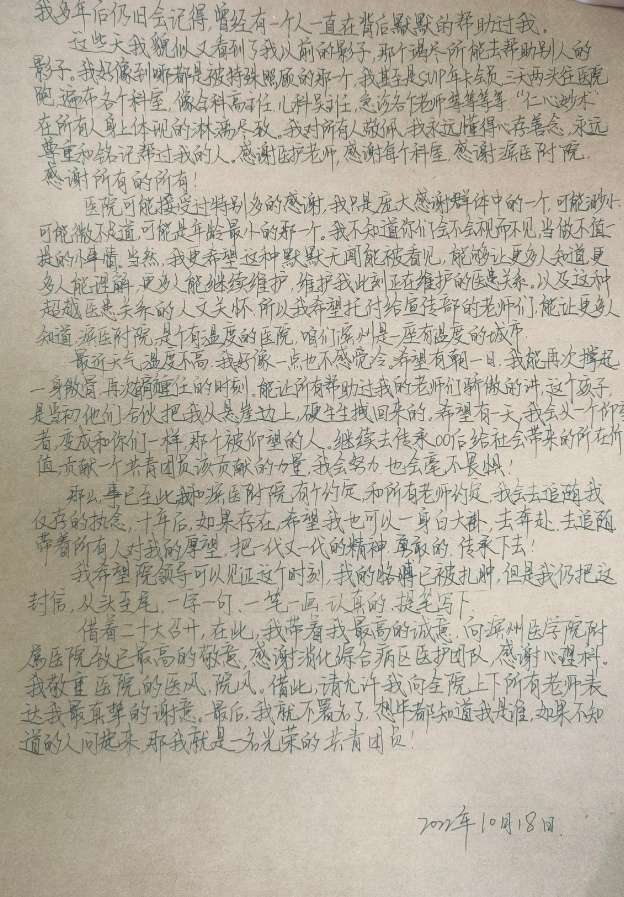 我多年后仍旧会记得,曾经有一个人一直在背后默默的帮助过我。
这些天我貌似又看到了我以前的影子,那个竭尽所能去帮助别人的
影子。我好像到哪都是被特殊照顾的那个,我甚至是SVIP年卡会员,三天两头往医院
跑,遍布各个科室,像会科高主任,儿科吴主任,急诊各个老师等等等等“仁心妙术”
在所有人身上体现的淋漓尽致。我对所有人敬佩,我永远懂得心存善念,永远
尊重和铭记帮过我的人。感谢医护老师,感谢每个科室,感谢滨医附院,
感谢所有的所有!
医院可能接受过特别多的感谢,我只是庞大感谢群体中的一个,可能渺小,
可能微不足道,可能是年龄最小的那一个。我不知道你们会不会视而不见,当做不值一
提的小事情。当然,我更希望这种默默无闻能被看见,能够让更多人知道,更
多人能理解,更多人能继续维护,维护我此刻正在维护的医患关系。以及这种
超越医患关系的人文关怀。所以我希望托付给宣传部的老师们,能让更多人
知道,滨医附院,是个有温度的医院,咱们滨州是一座有温度的城市。
最近天气温度不高,我好像一点也不感觉冷。希望有朝一日,我能再次撑起
一身傲骨,再次肩负重任的时刻,能让所有帮助过我的老师们骄傲的讲,这个孩子,
是当初他们合伙把我从悬崖边上,硬生生拽回来的,希望有一天,我会从一个仰望
者,变成和你们一样,那个被仰望的人。继续去传承00后给社会带来的所在价
值,贡献一个共青团员该贡献的力量,我会努力,也会毫不畏惧!
那么事已至此,我和滨医附院,有个约定,和所有老师约定,我会去追随我
仅存的执念,十年后,如果存在,希望我也可以一身白大褂,去奔赴,去追随,
带着所有人对我的厚望,把一代又一代的精神,勇敢的,传承下去!
我希望院领导可以见证这个时刻,我的胳膊已被扎肿,但是我仍把这
封信,从头至尾,一字一句,一笔一画,认真的,提笔写下。
借着二十大召开,在此,我带着我最高的诚意,向滨州医学院附
属医院致已最高的敬意,感谢消化综合病区医护团队,感谢心理科。
我敬重医院的医风,院风。借此,请允许我向全院上下所有老师表
达我最真挚的谢意。最后,我就不署名了,想毕都知道我是谁,如果不知
道的人问起来,那我就是一名光荣的共青团员!
2022年10月18日.